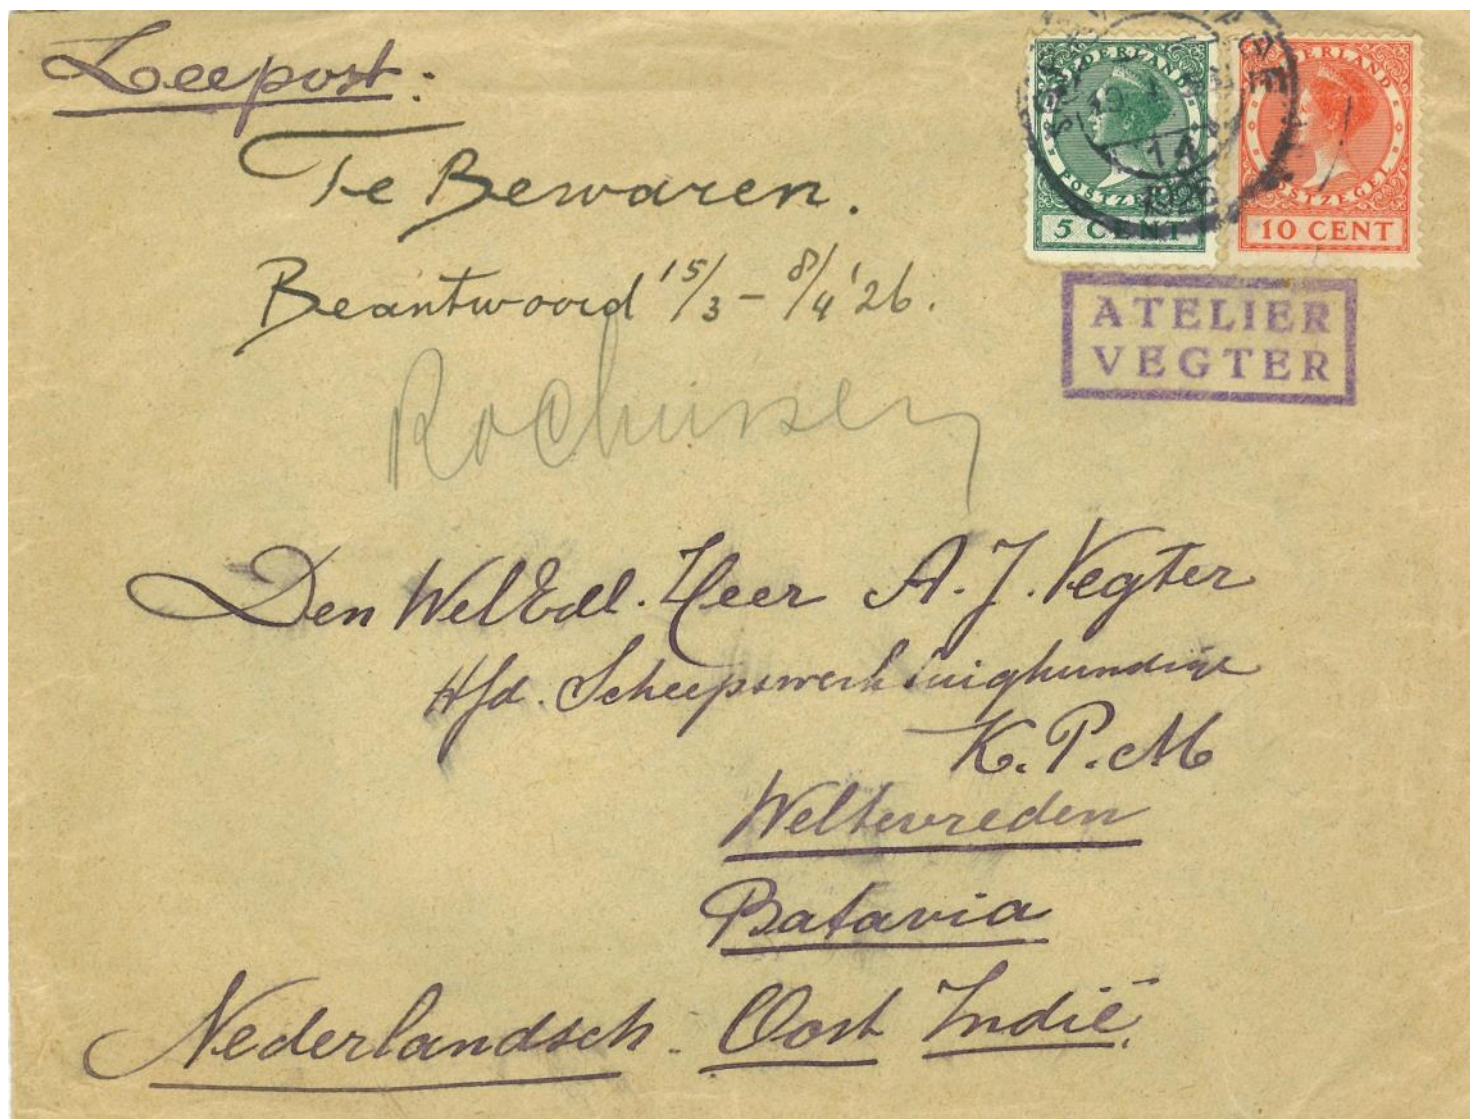 Zeepost:
Te Bewaren.
Beantwoord 15/3 - 8/4 '26.
Rochussen
NEDERLAND
POSTZEGEL
5 CENT
NEDERLAND
POSTZEGEL
10 CENT
1926
ATELIER
VEGTER
Den WelEdl. Heer A. J. Vegter
Hfd. Scheepswerktuigkundige
K. P. M
Weltevreden
Batavia
Nederlandsch - Oost Indië.